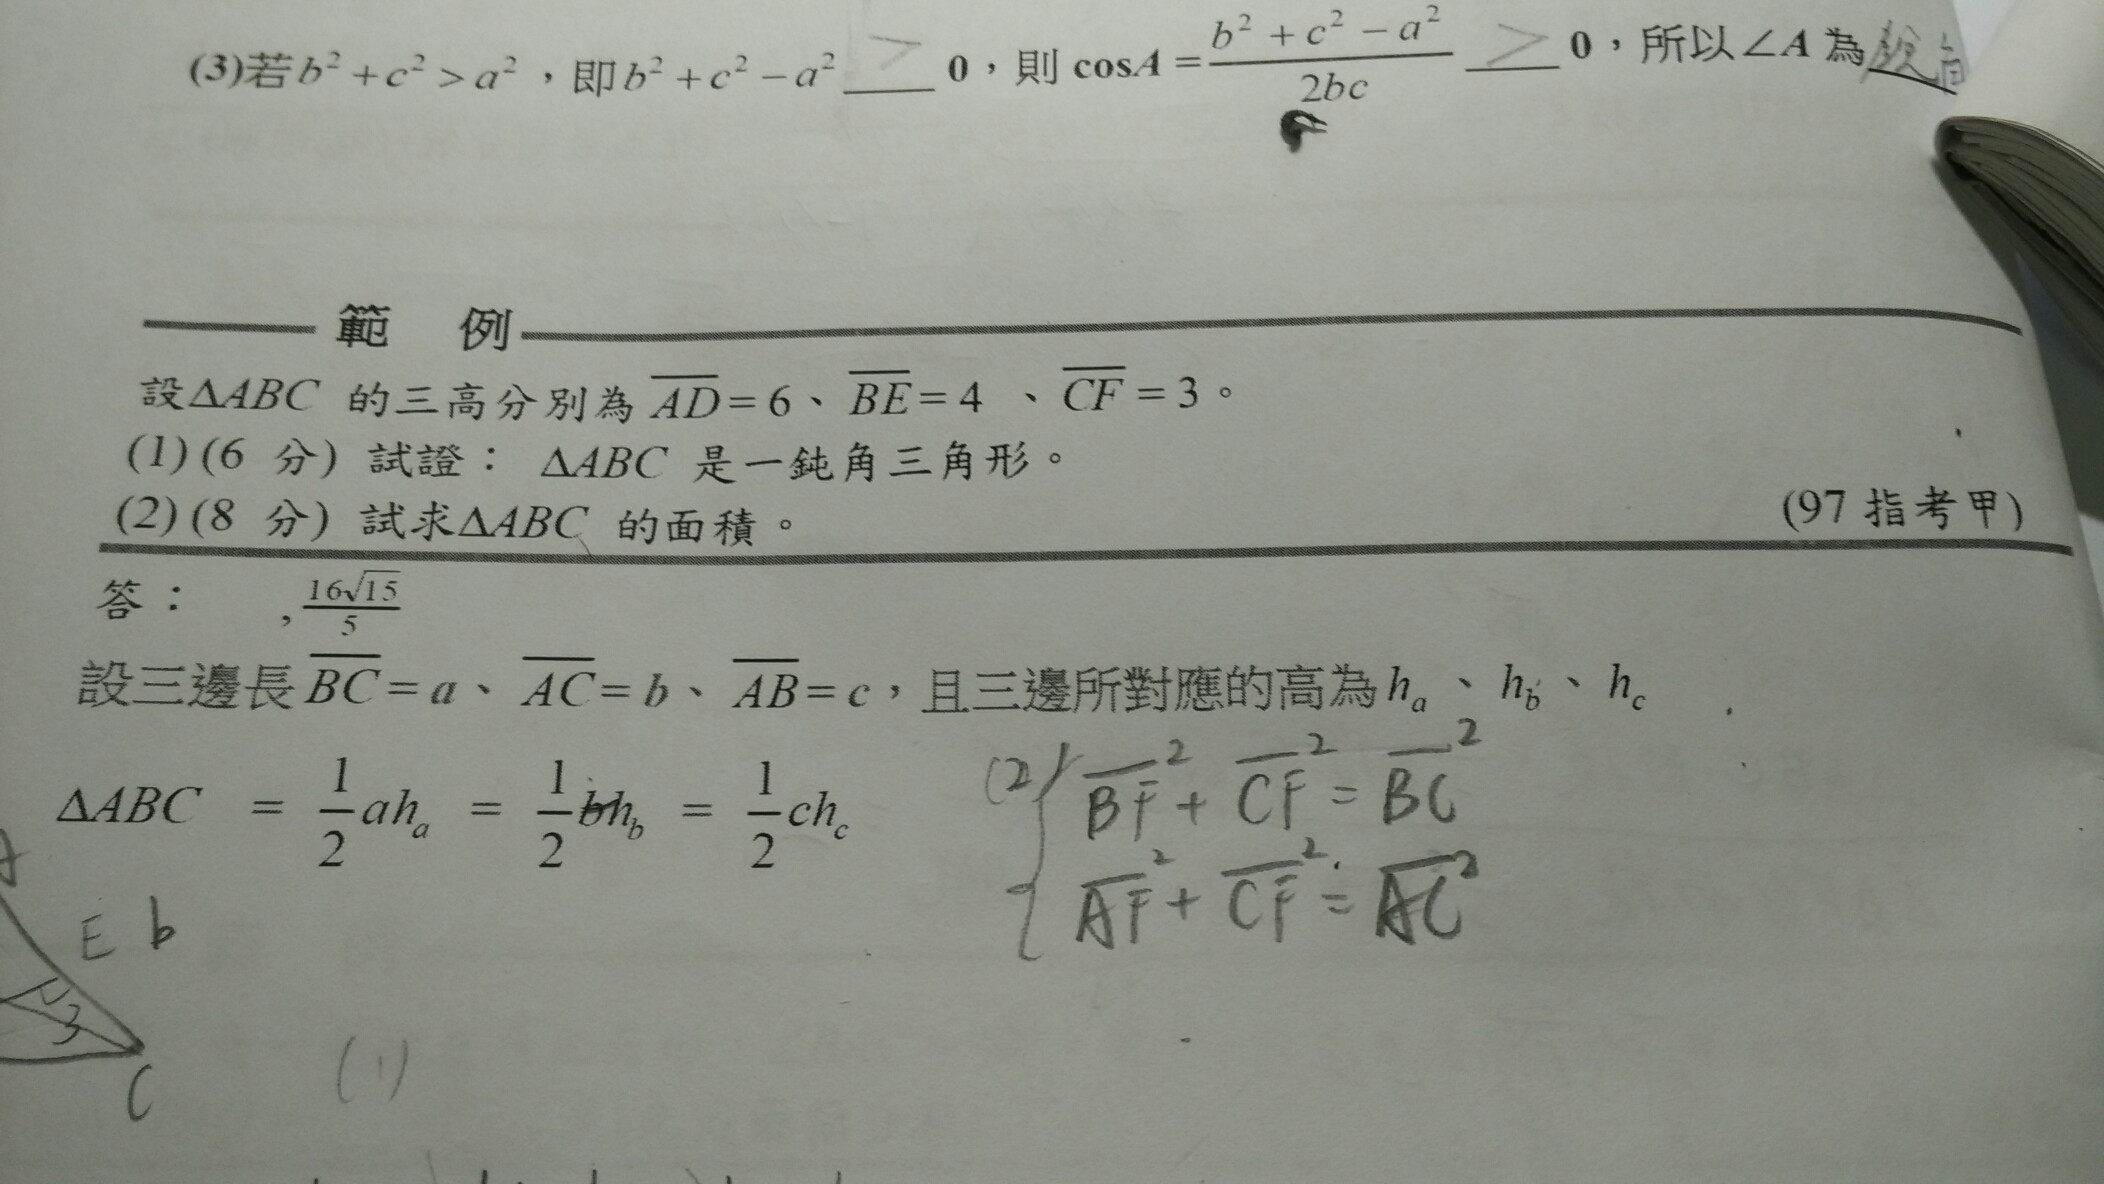 (3)若b²+c²>a²，即b²+c²−a² > 0，則 cosA = \frac{b²+c²−a²}{2bc} > 0，所以∠A 為銳角
範 例
設ΔABC 的三高分別為 \overline{AD}=6、\overline{BE}=4 、\overline{CF}=3。
(1)(6 分) 試證： ΔABC 是一鈍角三角形。
(2)(8 分) 試求ΔABC 的面積。 (97 指考甲)
答： , \frac{16√15}{5}
設三邊長\overline{BC}=a、\overline{AC}=b、\overline{AB}=c，且三邊所對應的高為h_a、h_b、h_c
ΔABC = \frac{1}{2}ah_a = \frac{1}{2}bh_b = \frac{1}{2}ch_c
(2) \overline{BF}²+\overline{CF}²=\overline{BC}²
\overline{AF}²+\overline{CF}²=\overline{AC}²
E b
3
C
(1)